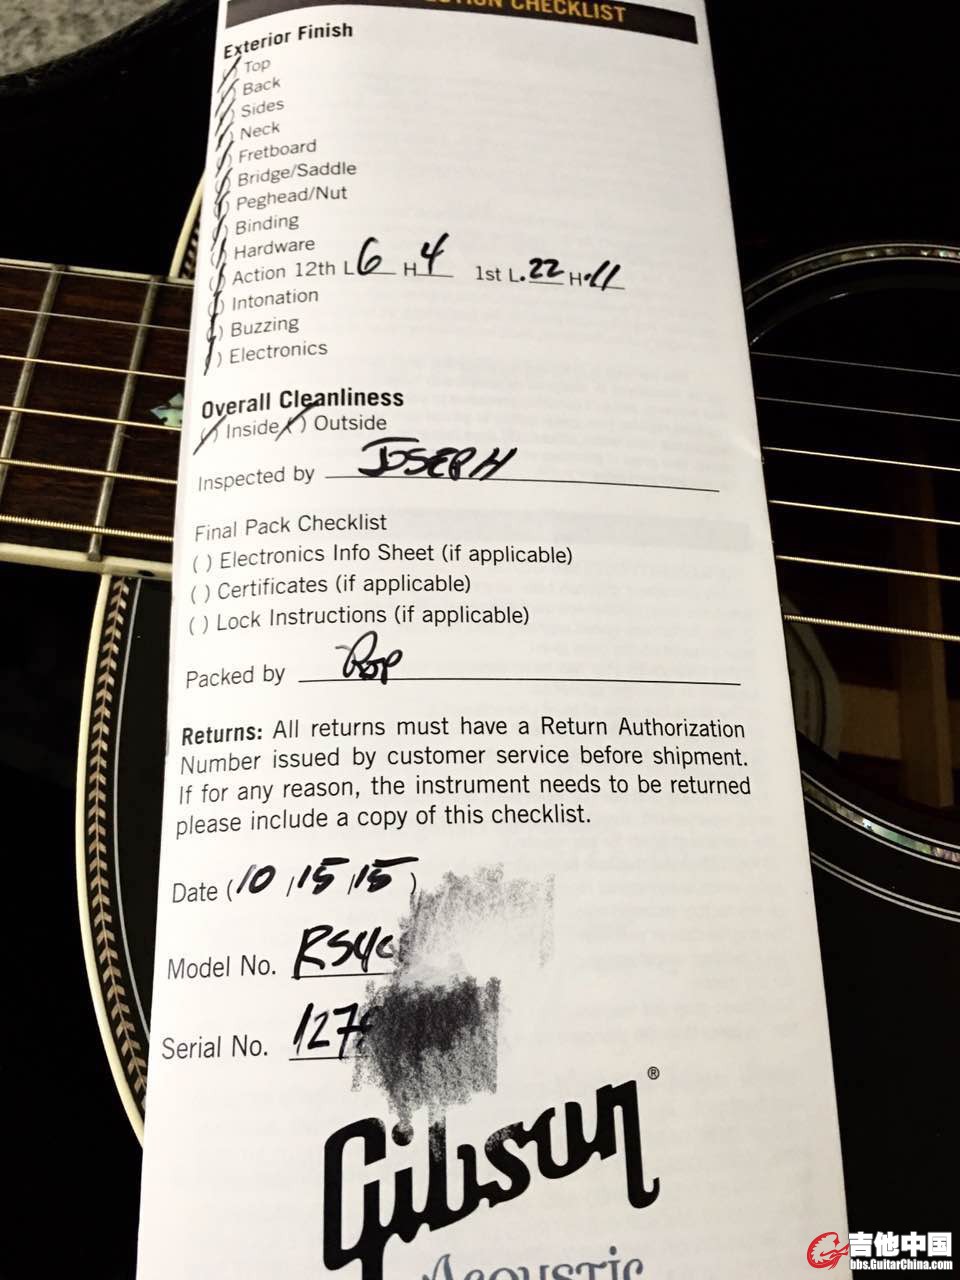 CHECKLIST
Exterior Finish
Top
Back
Sides
Neck
Fretboard
Bridge/Saddle
Peghead/Nut
Binding
Hardware
Action 12th L 6 H 4 1st L .22 H .11
Intonation
Buzzing
Electronics
Overall Cleanliness
Inside Outside
Inspected by JOSEPH
Final Pack Checklist
( ) Electronics Info Sheet (if applicable)
( ) Certificates (if applicable)
( ) Lock Instructions (if applicable)
Packed by
Returns: All returns must have a Return Authorization
Number issued by customer service before shipment.
If for any reason, the instrument needs to be returned
please include a copy of this checklist.
Date (10/15/15)
Model No. RS4C
Serial No. 127
Gibson®
Acoustic
吉他中国
bbs.GuitarChina.com